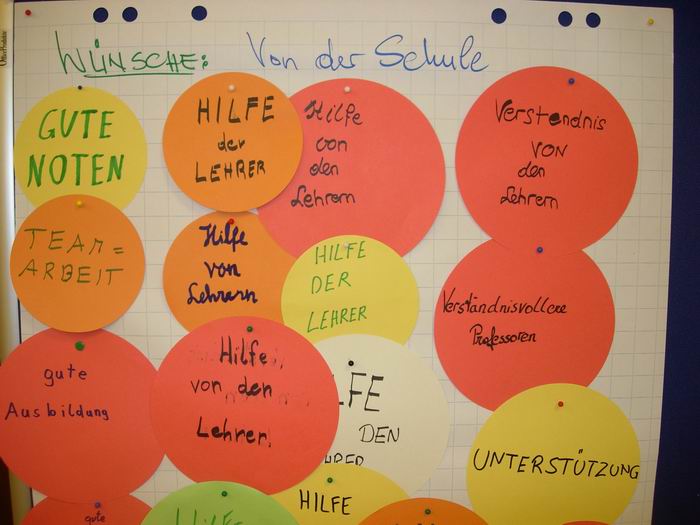 WÜNSCHE: Von der Schule
GUTE
NOTEN
HILFE
der
LEHRER
Hilfe
von
den
Lehrern
Verstendnis
VON
den
Lehrern
TEAM=
ARBEIT
Hilfe
von
Lehrern
HILFE
DER
LEHRER
Verständnisvollere
Professoren
gute
Ausbildung
Hilfe
von den
Lehrer
DEN
UNTERSTÜTZUNG
HILFE
gute